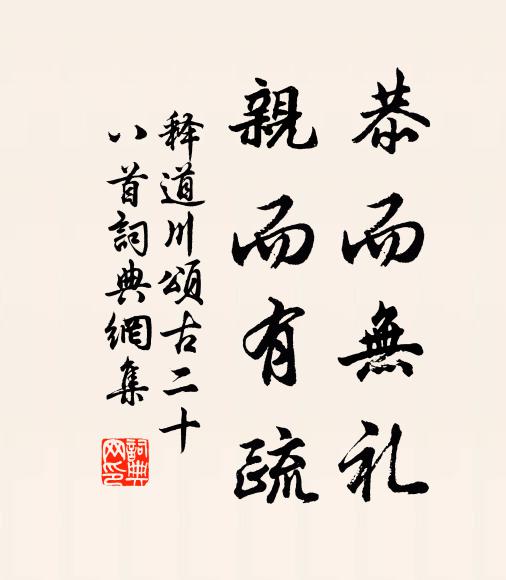 恭而無礼
親而有疏
释道川頌古二十
八首詞典網集
詞典
网印